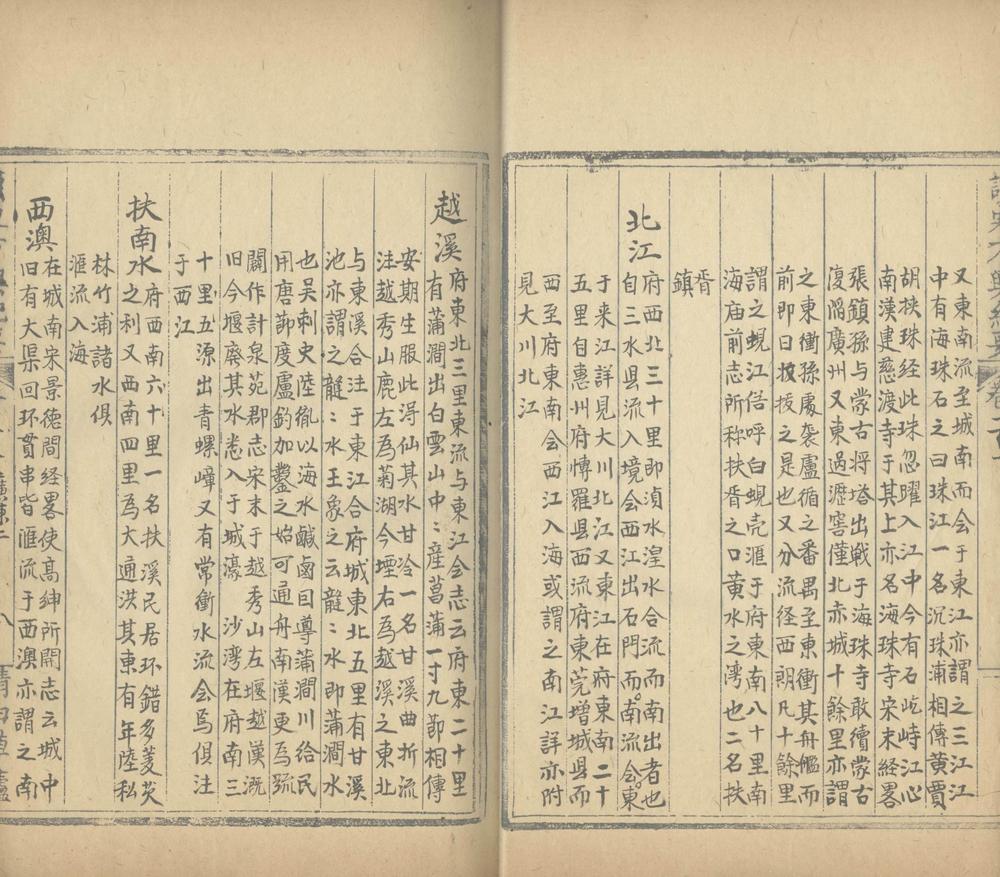 又東南流至城南而会于東江亦謂之三江江
中有海珠石之曰珠江一名沉珠浦相傳黄賈
胡挟珠经此珠忽躍入江中今有石屹峙江心
南漢建慈渡寺于其上亦名海珠寺宋末経畧
張鎮孫与蒙古将塔出戦于海珠寺敢續蒙古
復陷廣州又東過瀝窖僅北亦城十餘里亦謂
之東衝孫處袭盧循之番禺至東衝其舟艦而
前即日抜之是也又分流经西朗凡十餘里
謂之蜆江俗呼白蜆壳滙于府東南八十里南
海庙前志所称扶胥之口黄水之湾也二名扶
胥
鎮
北江
府西北三十里即湞水湟水合流而南出者也
自三水县流入境会西江出石門而南流会東
于来江詳見大川北江又東江在府東南二十
五里自惠州府愽羅县西流府東莞增城县而
西至府東南会西江入海或謂之南江詳亦附
見大川北江
越溪
府東北三里東流与東江会志云府東二十里
有蒲澗出白雲山中〻産菖蒲一寸九節相傳
安期生服此淂仙其水甘冷一名甘溪曲折流
注越秀山鹿左為菊湖今堙右為越溪之東北
与東溪合注于東江合府城東北五里有甘溪
池亦謂之𨏦〻水王象之云𨏦〻水即蒲澗水
也吴刺史陸徹以海水鹹鹵曰導蒲澗川给民
用唐莭度盧鈞加鑿之始可通舟南漢更為㴞
闢作計泉苑郡志宋末于越秀山左堰越漢溉
旧今堰廢其水悉入于城濠 沙湾在府南三
十里五源出青螺嶂又有常衝水流会焉俱注
于西江
扶南水
府西南六十里一名扶溪民居环錯多菱芡
之利又西南四里為大通洪其東有年陸私
林竹浦諸水俱
滙流入海
西澳
在城南宋景徳間経畧使髙紳所開志云城中
旧有大渠回环貫串皆滙流于西澳亦謂之南